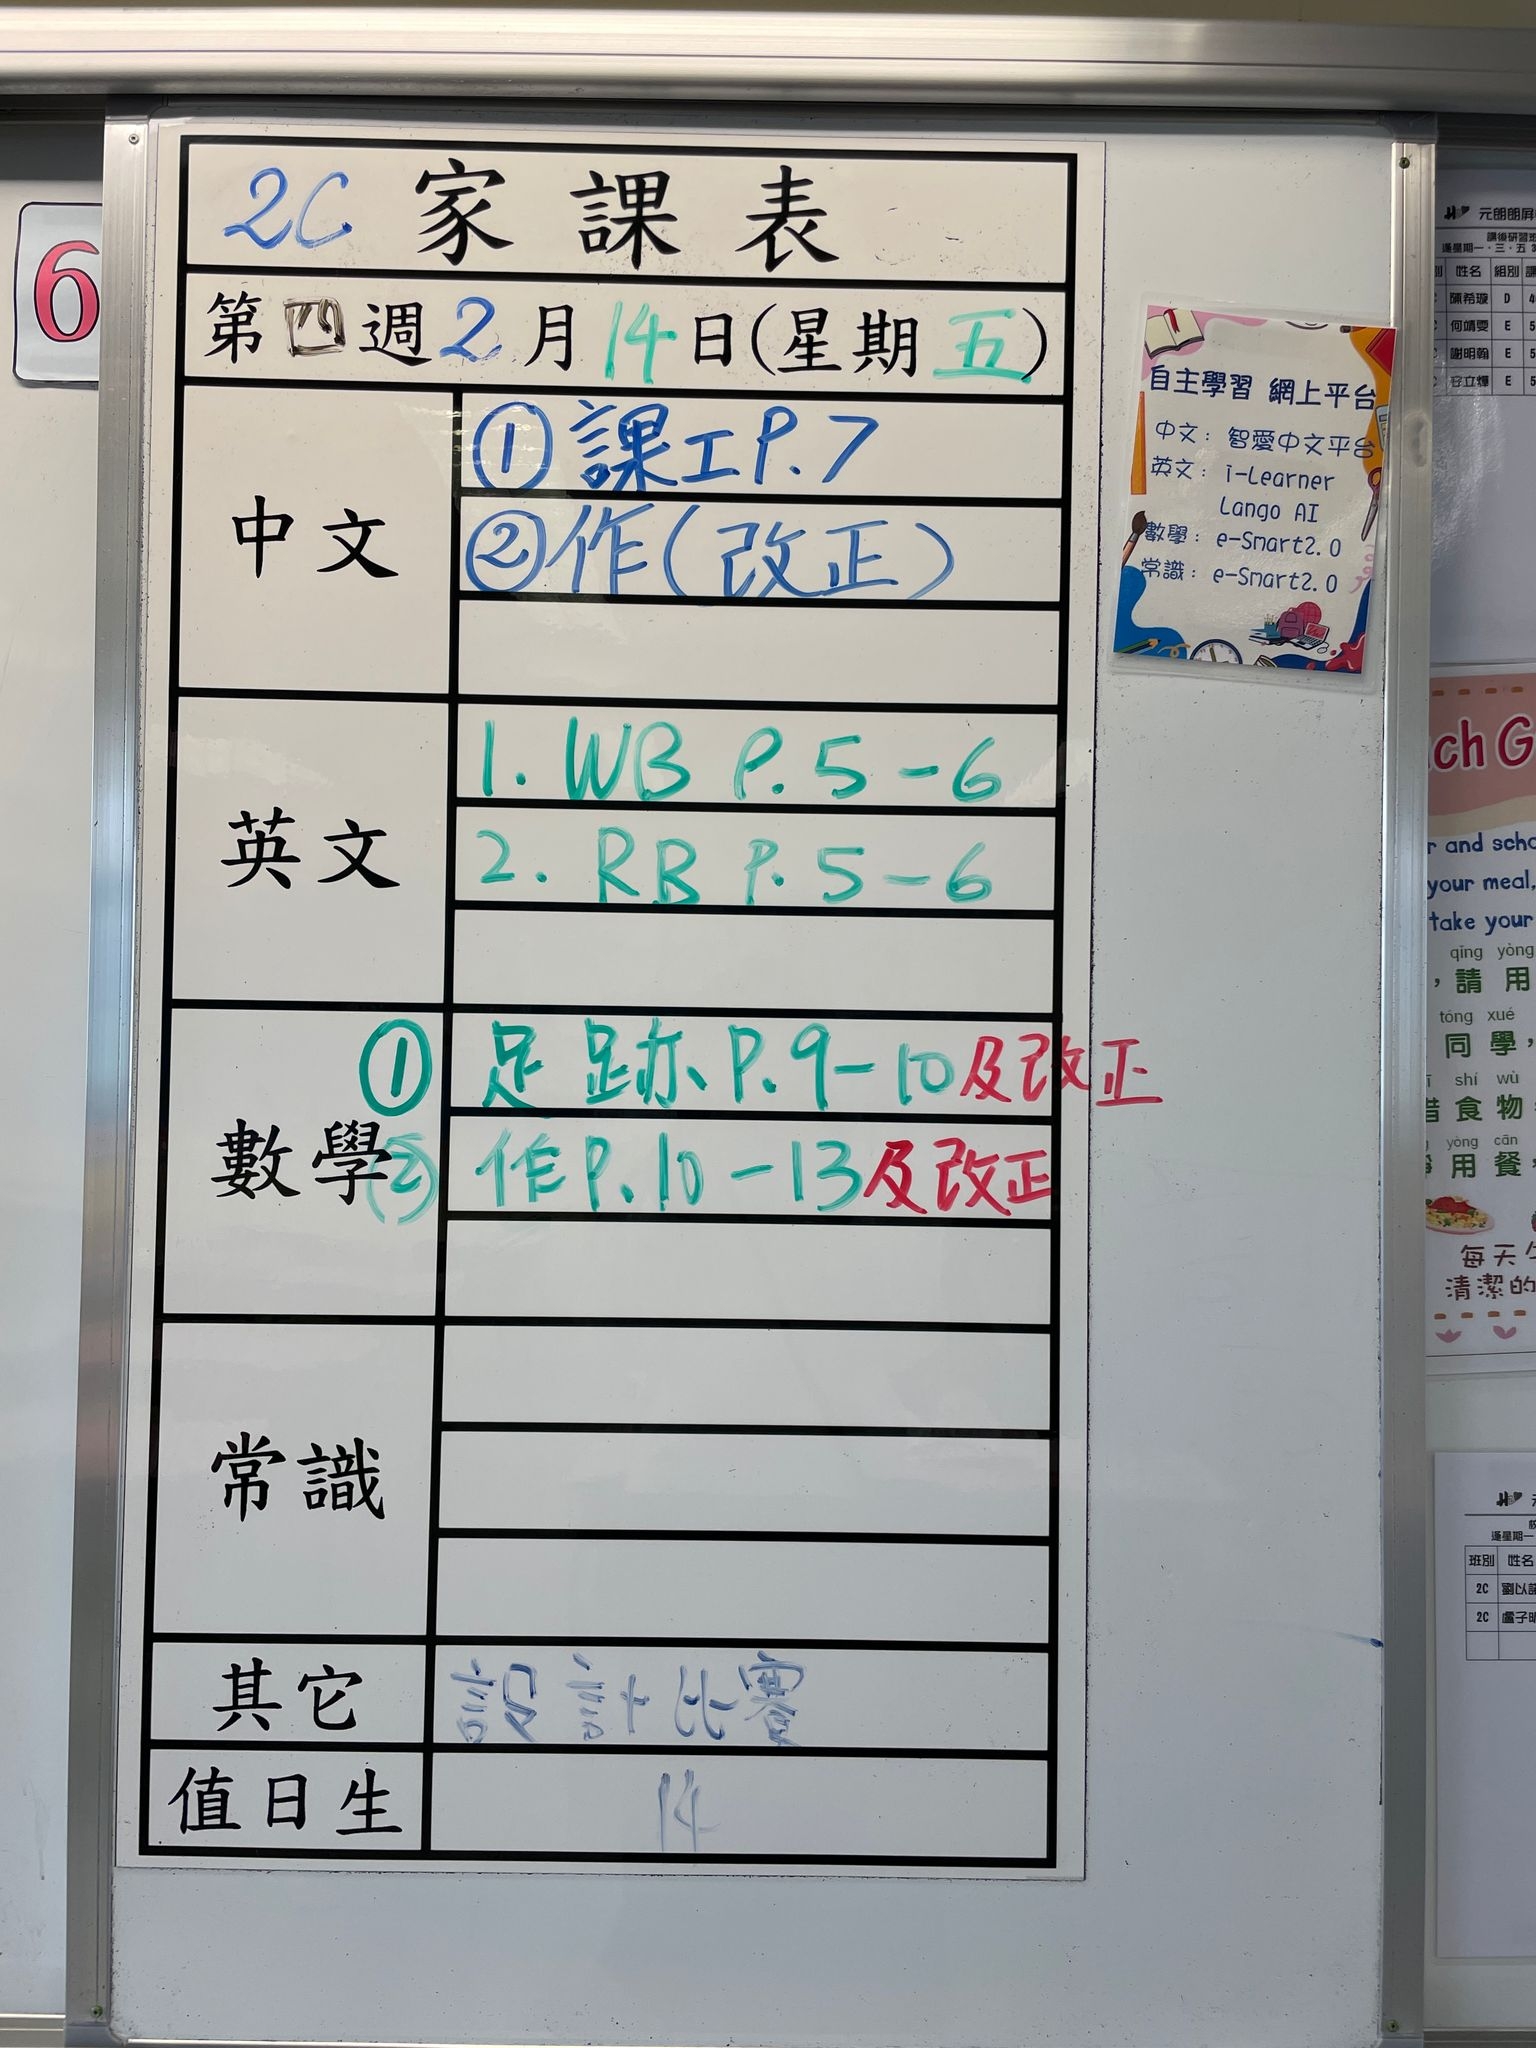 6
2C 家課表
第四週2月14日(星期五)
中文
①課工P.7
②作(改正)
英文
1. WB P.5-6
2. RB P.5-6
數學
① 足跡P.9-10及改正
② 作P.10-13及改正
常識
其它
設計比賽
值日生
14
自主學習 網上平台
中文: 智愛中文平台
英文: i-Learner
Lango AI
數學: e-Smart2.0
常識: e-Smart2.0
元朗朗屏
課後研習班
逢星期一、三、五
姓名 組別
陳希璇 D
何靖雯 E 5
謝明翰 E 5
E 5
ch G
r and scho
your meal,
take your
qǐng yòng
,請用
tóng xué
同學,
shí wù
惜食物
yòng cān
用餐
每天
清潔的
逢星期一
班別 姓名
2C 劉以
2C 盧子